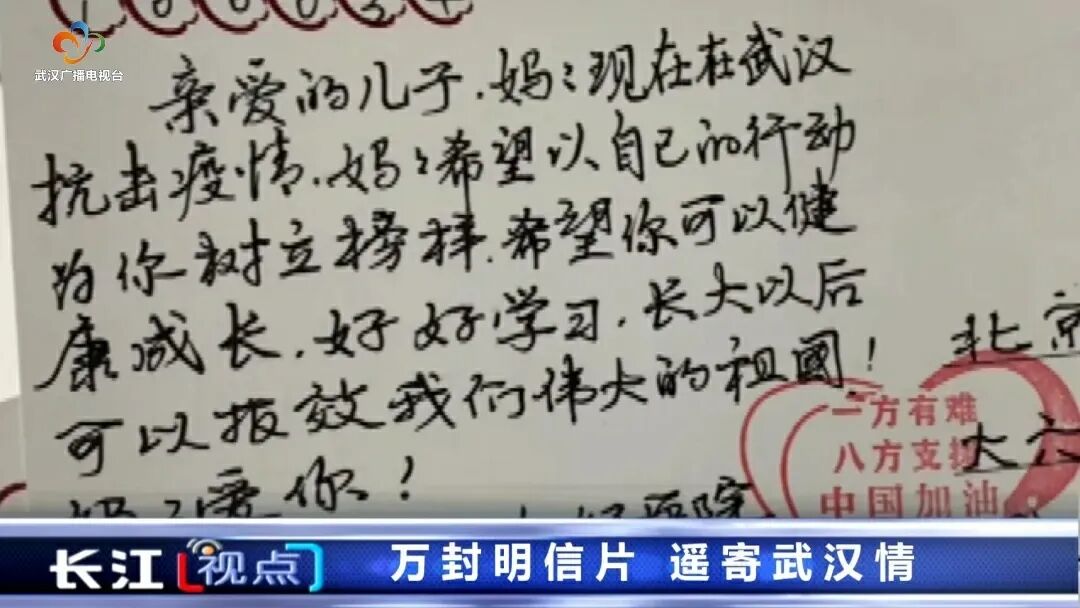 100034
武汉广播电视台
亲爱的儿子,妈々现在在武汉
抗击疫情,妈々希望以自己的行动
为你树立榜样,希望你可以健
康成长,好好学习,长大以后
可以报效我们伟大的祖國!
妈々爱你!
北京
大六
医院
一方有难
八方支援
中国加油
长江视点
万封明信片 遥寄武汉情